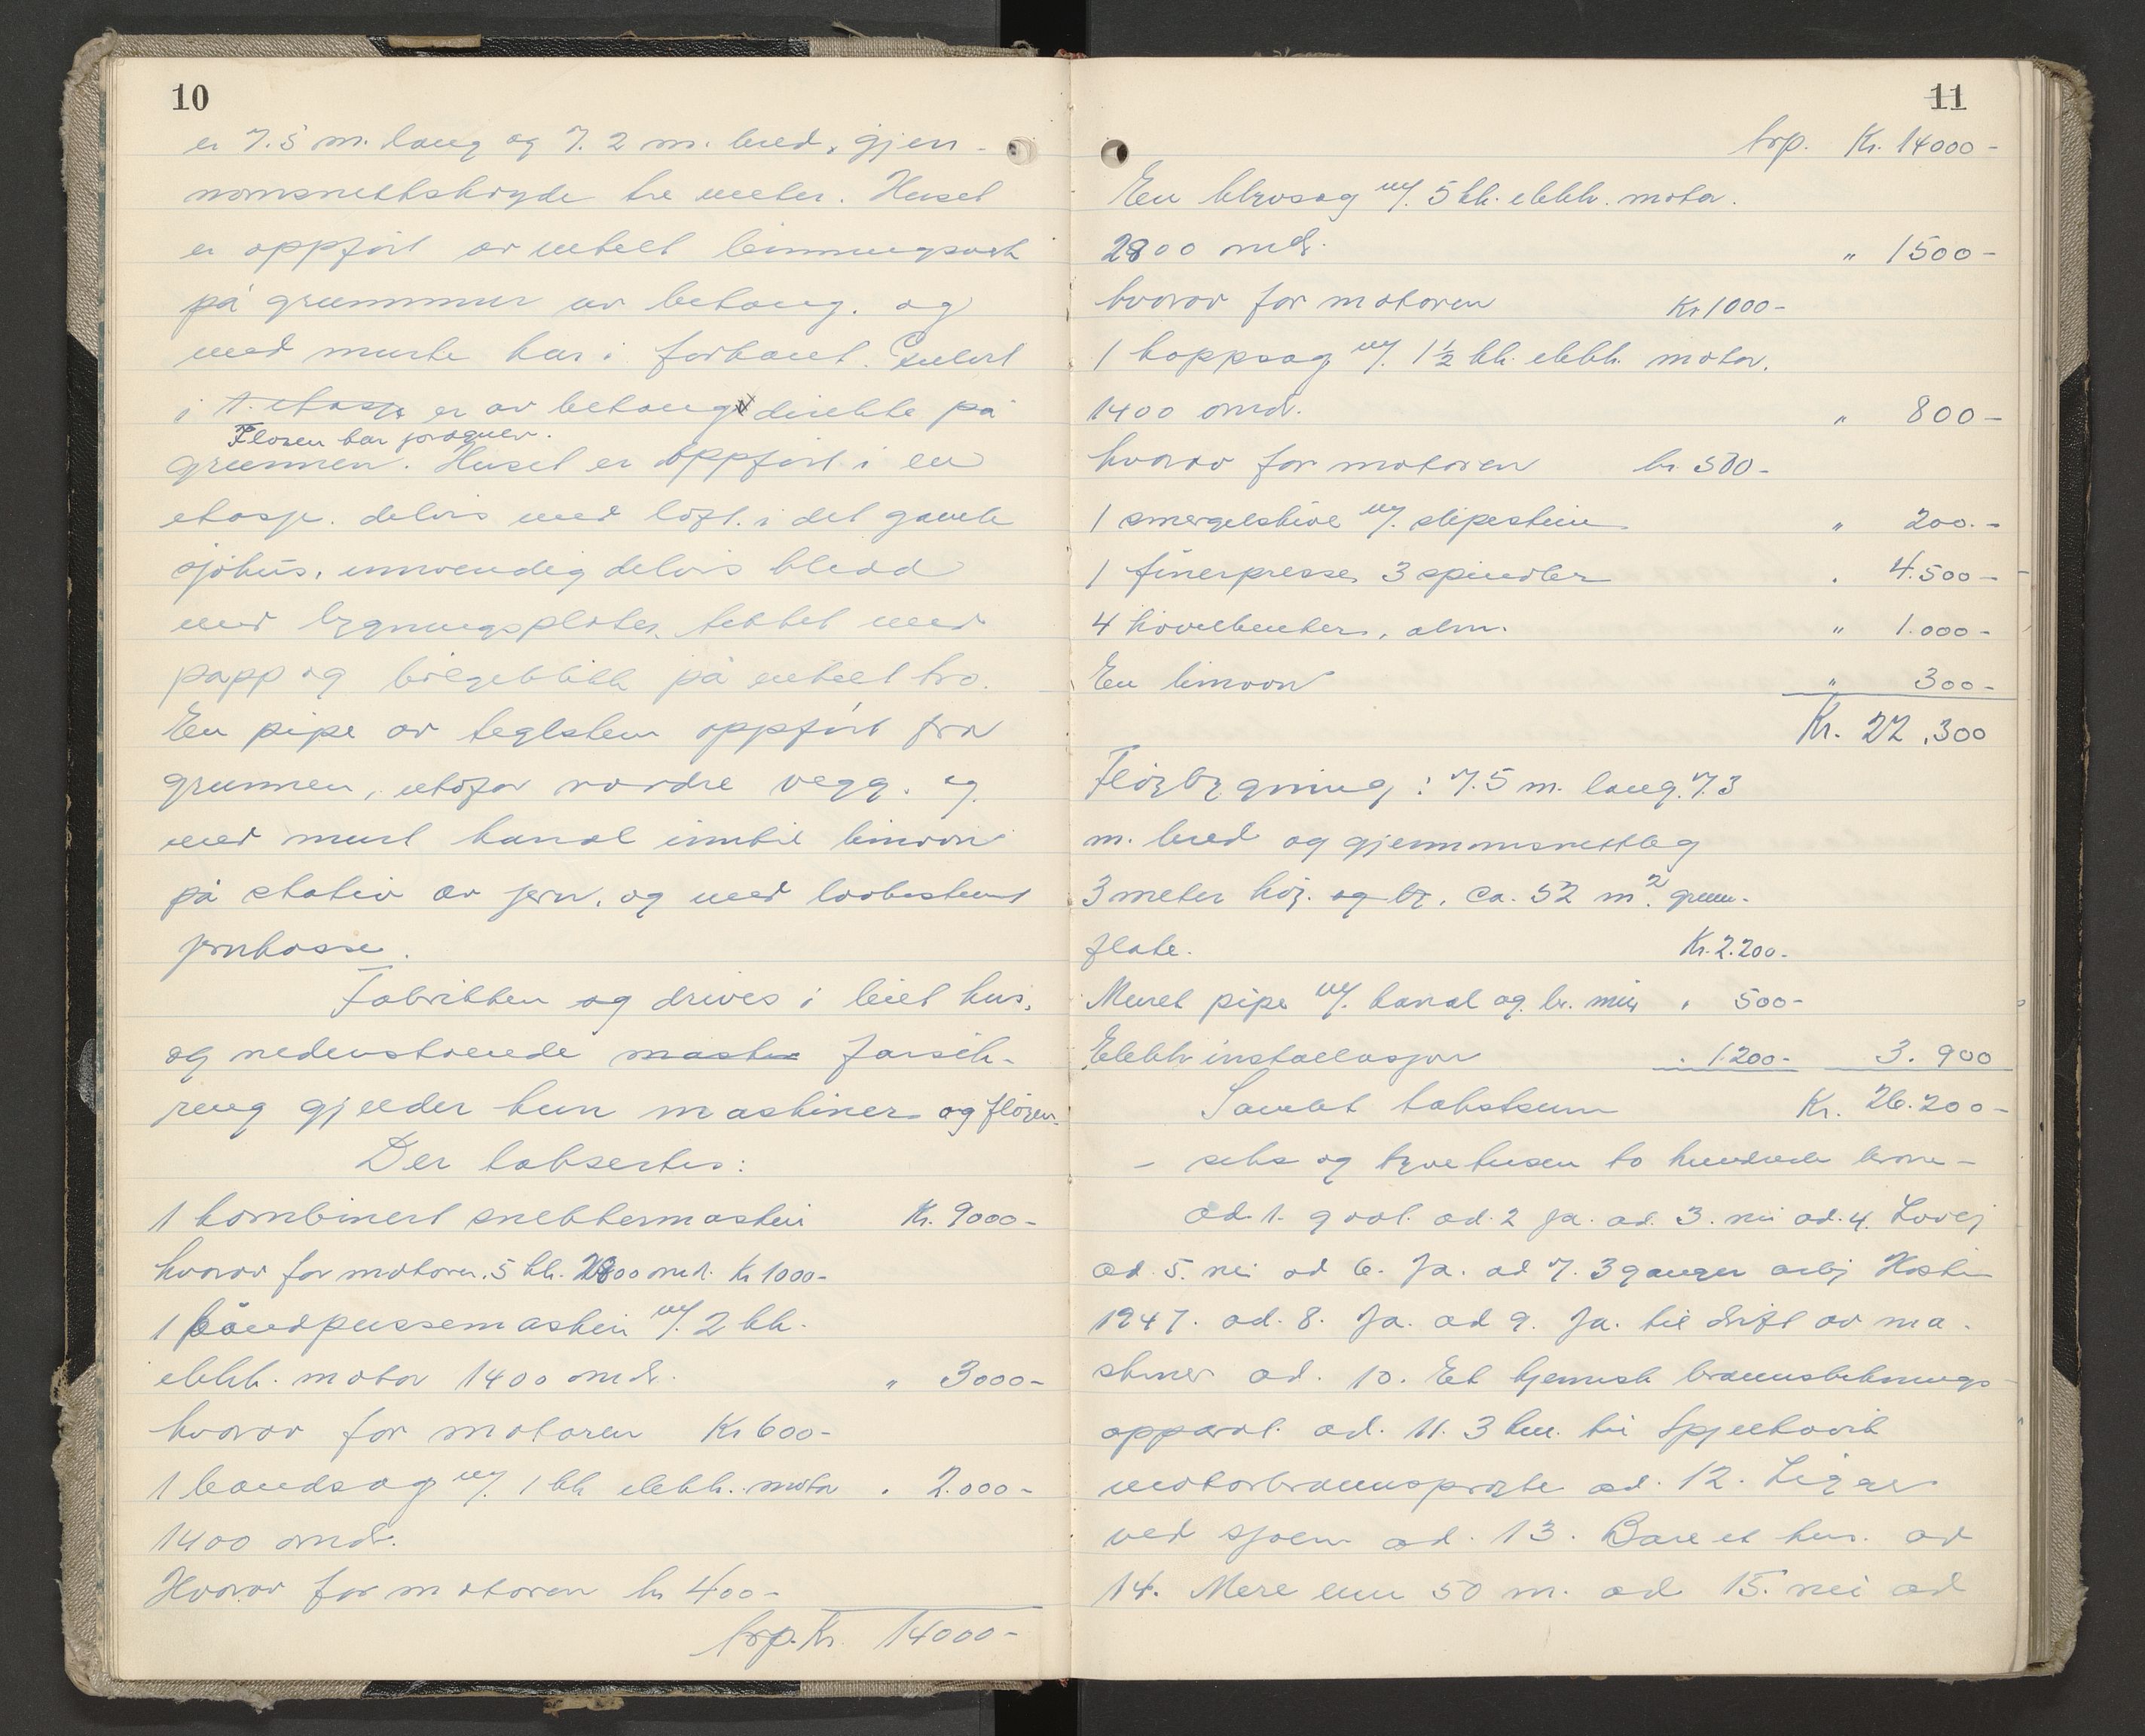 10
er 7.5 m. lang og 7.2 m. bred, gjen-
nomsnettshøyde tre meter. Huset
er oppført av uhøvlt binningsverk
på grunnmur av betong. og
med murte kar i forkant. Gulvet
i 1. etasje er av betong direkte på
Fløien har jorgulv.
grunnen. Huset er oppført i en
etasje. delvis med loft. i det gamle
sjøhus, innvendig delvis kledd
med bygningsplater, tekket med
papp og bølgeblikk på uhøvlt tro.
En pipe av teglsten oppført fra
grunnen, utafor nordre vegg. og
med murt kanal inntil limovn
på stativ av jern, og med
jernkasse.
Fabrikken og drives i leiet hus,
og nedenstående maski forsik-
ring gjelder kun maskiner og fløien.
Der takseres:
1 kombinert snekkermaskin Kr. 9000-
hvorav for motoren. 5 hk. 2800 omd. Kr 1000-
1 båndpussemaskin m/. 2 hk.
elektr. motor 1400 omdr. " 3000-
hvorav for motoren Kr 600-
1 bandsag m/. 1 hk elektr. motor . 2.000-
1400 omdr.
Hvorav for motoren kr 400-
trp. Kr. 14000-
11
trp. Kr. 14000-
En kløvsag m/. 5 hk. elektr. motor.
2800 omdr. " 1500-
hvorav for motoren Kr 1000-
1 kappsag m/. 1½ hk. elektr. motor.
1400 omdr. " 800-
hvorav for motoren kr 500-
1 smergelskive m/. slipestein " 200.-
1 finerpresse, 3 spindler . 4.500-
4 høvelbenker, alm. " 1.000-
En limovn " 300-
Kr. 22.300
Fløybygning: 7.5 m. lang. 7.3
m. bred og gjennomsnettleg
3 meter høy. og br. ca. 52 m². grunn-
flate. Kr. 2.200.-
Muret pipe m/. kanal og br. mur , 500-
Elektr installasjon . 1200- 3.900
Samlet takstsum Kr. 26.200-
- seks og tyve tusen to hundrede kroner -
ad. 1. god. ad. 2 ja. ad. 3. nei ad. 4. Lovej
ad 5. nei ad 6. Ja. ad 7. 3 ganger arbj Høsten
1947. ad. 8. Ja. ad 9. Ja. til drift av ma-
skiner ad. 10. Et kjemisk brannslukknings-
apparat. ad. 11. 3 km. til Spjelkavik
motorbrannsprøyte ad. 12. Ligger
ved sjøen ad. 13. Bare et hus. ad
14. Mere enn 50 m. ad 15. nei ad